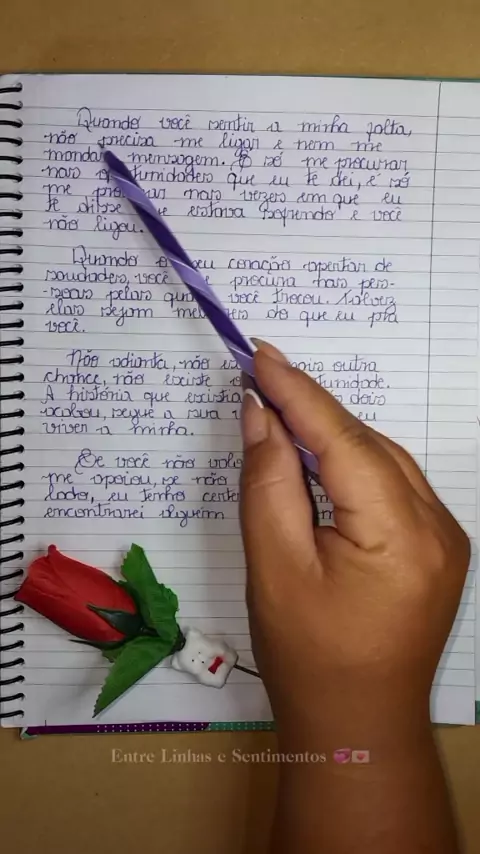 Quando você sentir a minha falta,
não precisa me ligar e nem me
mandar mensagem. É só me procurar
nas oportunidades que eu te dei, é só
me procurar nas vezes em que eu
te disse que estava sofrendo e você
não ligou.
Quando o seu coração apertar de
saudades, você me procura nas pes-
-soas pelas quais você trocou. Talvez
elas sejam melhores do que eu pra
você.
Não adianta, não mais outra
chance, não existe
A história que existia dois
acabou, segue a sua eu
viver a minha.
Se você não
me apoiou, se não
lado, eu tenho
encontrarei alguém
Entre Linhas e Sentimentos 💞💌